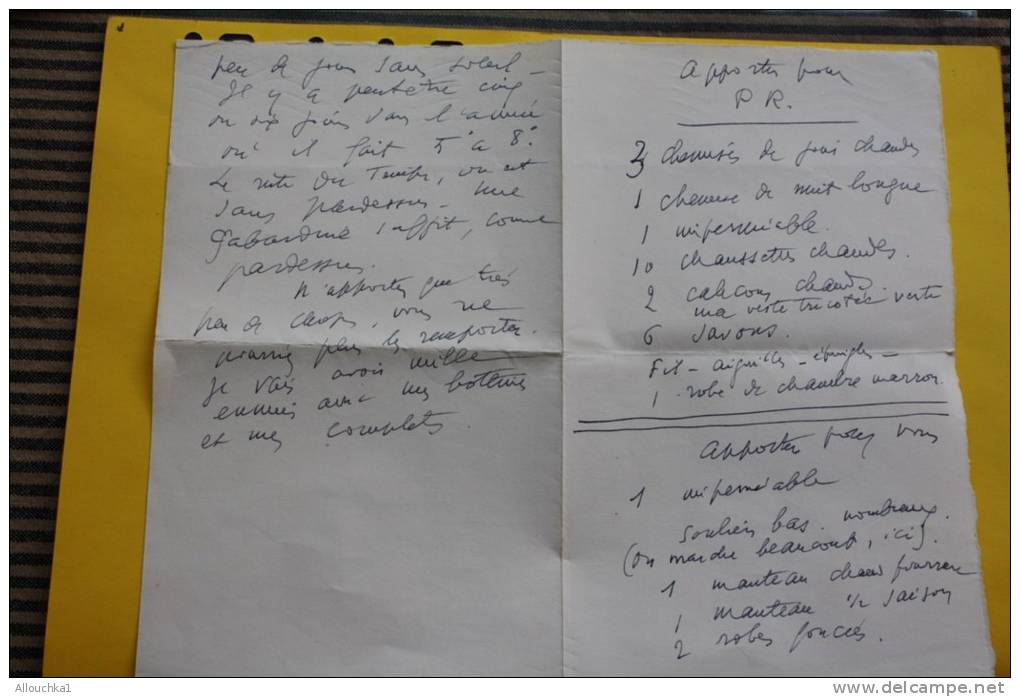 peu de jours sans soleil -
Il y a peut être cinq
ou six jours dans l'année
où il fait 5° à 8°.
Le reste du temps, on est
sans pardessus - une
gabardine suffit, comme
pardessus.
N'apportez que très
peu de choses, vous ne
pourrez plus les remporter.
Je vais avoir mille
ennuis avec mes bottines
et mes complets.
Apporter pour
P R.
3 chemises de jour chaudes
1 chemise de nuit longue
1 imperméable.
10 chaussettes chaudes.
2 caleçons chauds.
ma veste tricotée verte
6 savons.
Fil - aiguilles - épingles -
1 robe de chambre marron.
Apporter pour vous
1 imperméable
souliers bas. nombreux.
(on marche beaucoup, ici).
1 manteau chaud fourrure
1 manteau 1/2 saison
2 robes foncées.
Allouchka1
www.delcampe.net